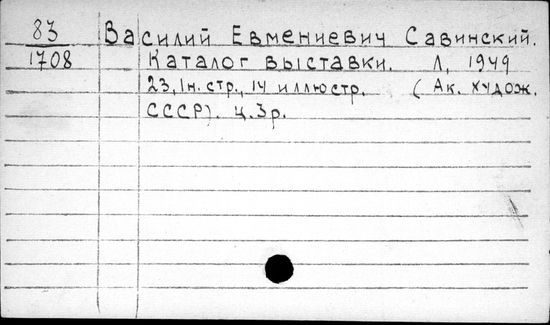 83 Василий Евмениевич Савинский.
1708 Каталог выставки. Л, 1949
23, 1н. стр., 14 иллюстр. (Ак. худож.
СССР). ц. 3р.